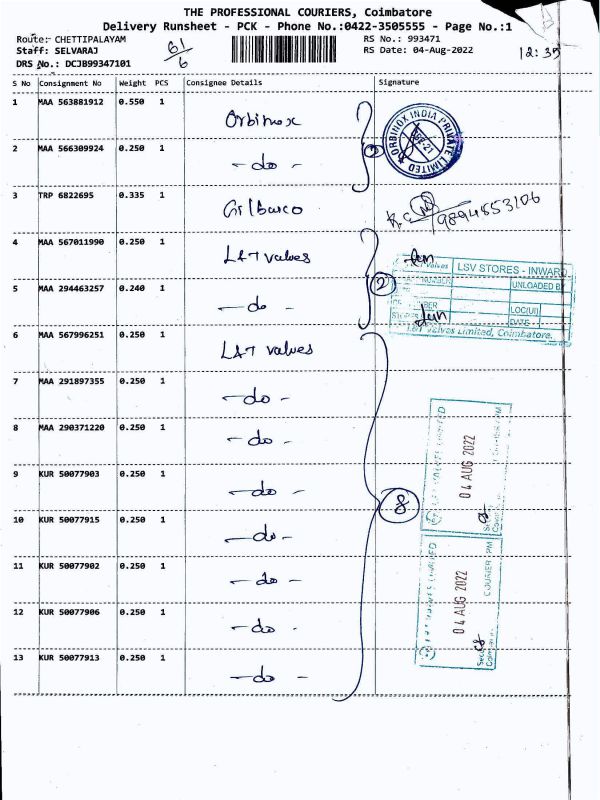 THE PROFESSIONAL COURIERS, Coimbatore
Delivery Runsheet - PCK - Phone No.:0422-3505555 - Page No.:1
Route:- CHETTIPALAYAM RS No.: 993471
Staff: SELVARAJ 61/6 RS Date: 04-Aug-2022 12:35
DRS No.: DCJB99347101
S No Consignment No Weight PCS Consignee Details Signature
1 MAA 563881912 0.550 1 Orbinox
ORBINOX INDIA PRIVATE LIMITED
2 MAA 566309924 0.250 1 -do-
3 TRP 6822695 0.335 1 Gilbarco 9894853106
4 MAA 567011990 0.250 1 L&T valves
LSV STORES - INWARD
UNLOADED BY
5 MAA 294463257 0.240 1 -do- 2
LOC(UI)
DATE
Valves Limited, Coimbatore.
6 MAA 567996251 0.250 1 L&T valves
7 MAA 291897355 0.250 1 -do-
8 MAA 290371220 0.250 1 -do-
04 AUG 2022
9 KUR 50077903 0.250 1 -do- 8
10 KUR 50077915 0.250 1 -do-
11 KUR 50077902 0.250 1 -do-
04 AUG 2022
COURIER
12 KUR 50077906 0.250 1 -do-
13 KUR 50077913 0.250 1 -do-